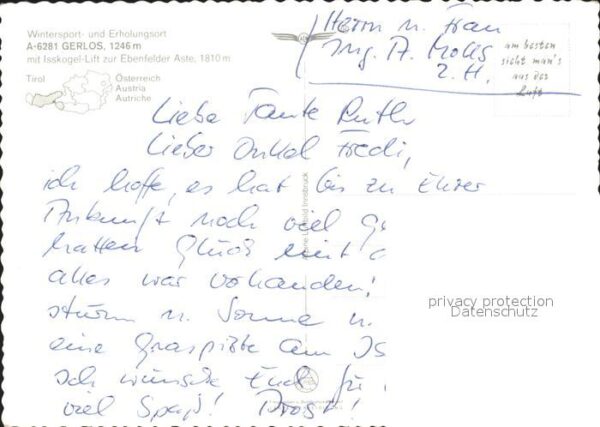 Wintersport- und Erholungsort
A-6281 GERLOS, 1246 m
mit Isskogel-Lift zur Ebenfelder Aste, 1810 m
Tirol
Österreich
Austria
Autriche
Herrn u. Frau
Ing. A.
Z. H.
am besten
sieht man's
aus der
Luft
Liebe Tante Ruth
Lieber Onkel Fredi,
ich hoffe, es hat bis zu Eurer
Ankunft noch viel
hatten Glück mit
alles war vorhanden!
sturm u. Sonne u.
eine Graspiste am
Ich wünsche Euch für
viel Spaß! Prost!
privacy protection
Datenschutz